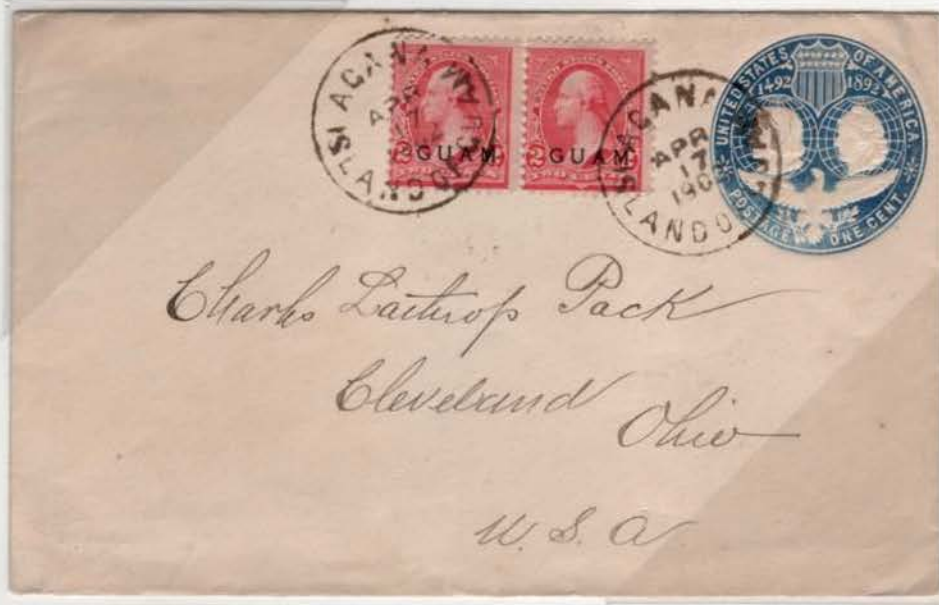 AGANA
APR
17
ISLAND OF GUAM
GUAM
2 2
TWO CENTS
GUAM
2
TWO
AGANA
APR
17
190
ISLAND OF GUAM
UNITED STATES OF AMERICA
1492 1893
POSTAGE ONE CENT.
Charles Lathrop Pack
Cleveland
Ohio
U. S. A